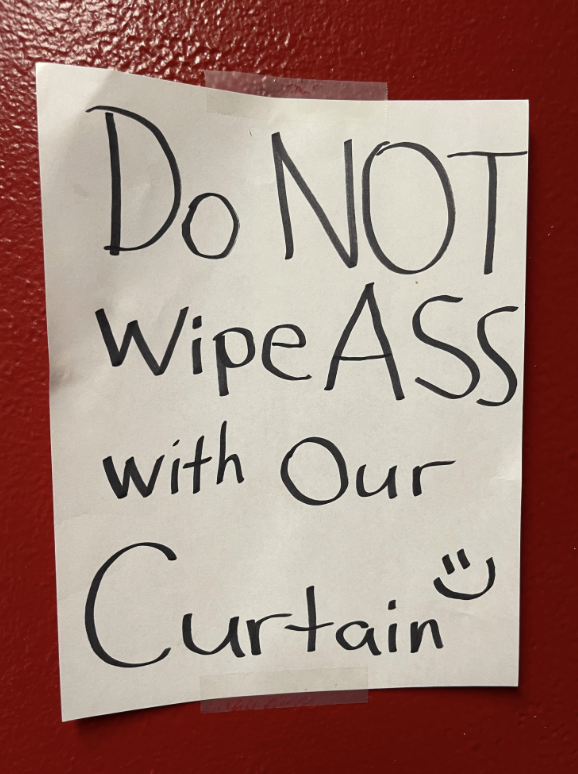 Do NOT
wipe ASS
with Our
Curtain